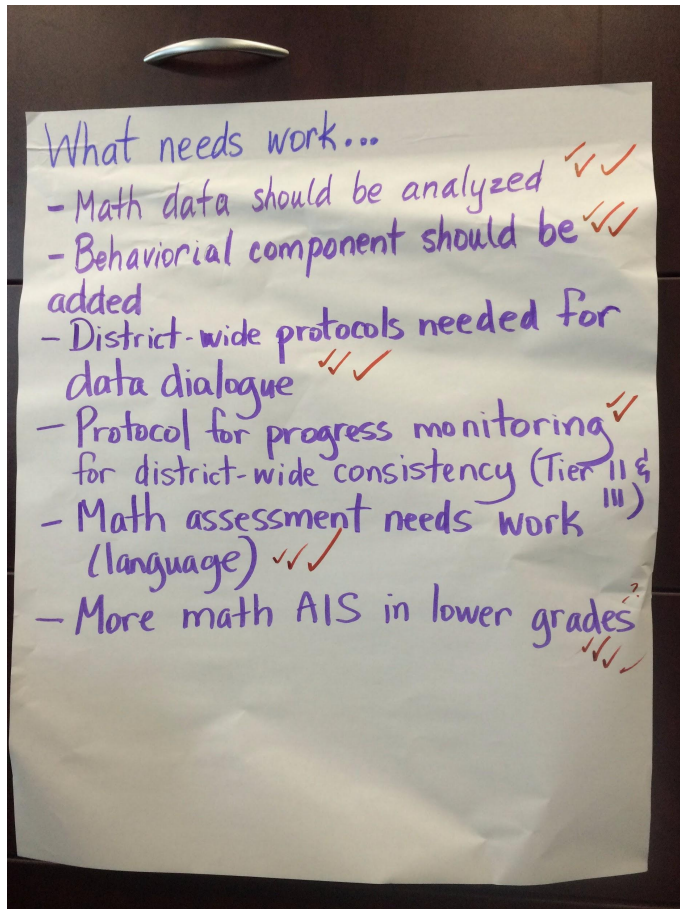 What needs work...
- Math data should be analyzed ✓✓✓
- Behaviorial component should be ✓✓✓
added
- District-wide protocols needed for
data dialogue ✓✓✓
- Protocol for progress monitoring ✓✓
for district-wide consistency (Tier II &
III)
- Math assessment needs work
(language) ✓✓✓
- More math AIS in lower grades ?
✓✓✓✓